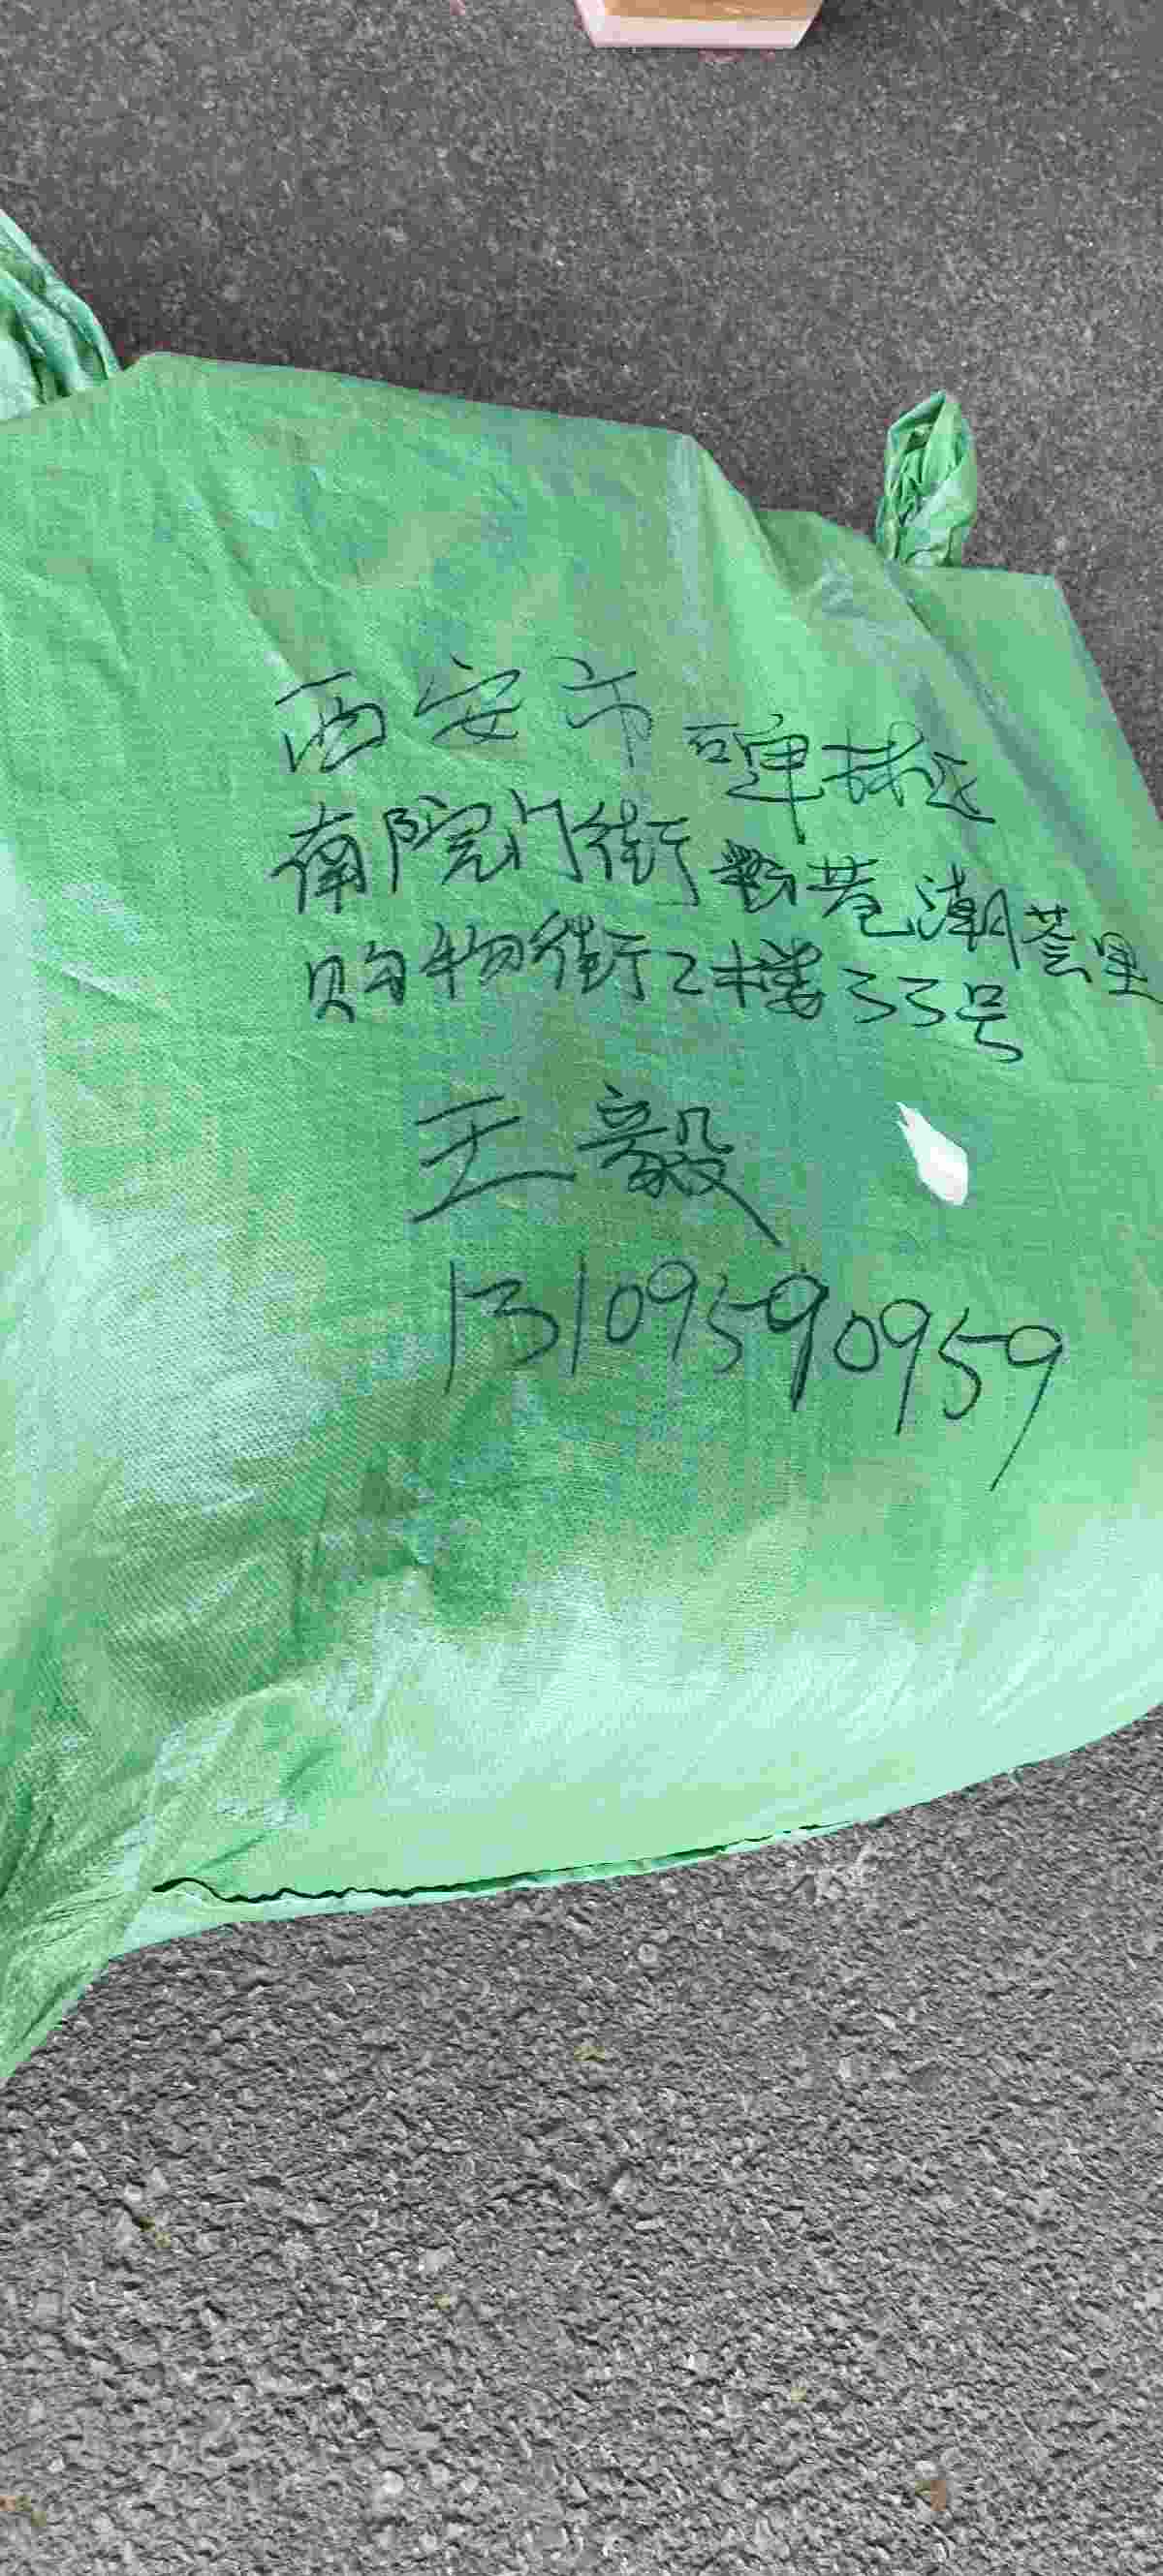 西安市碑林区
南院门街粉巷潮荟里
购物街2楼33号
王毅
13109590959